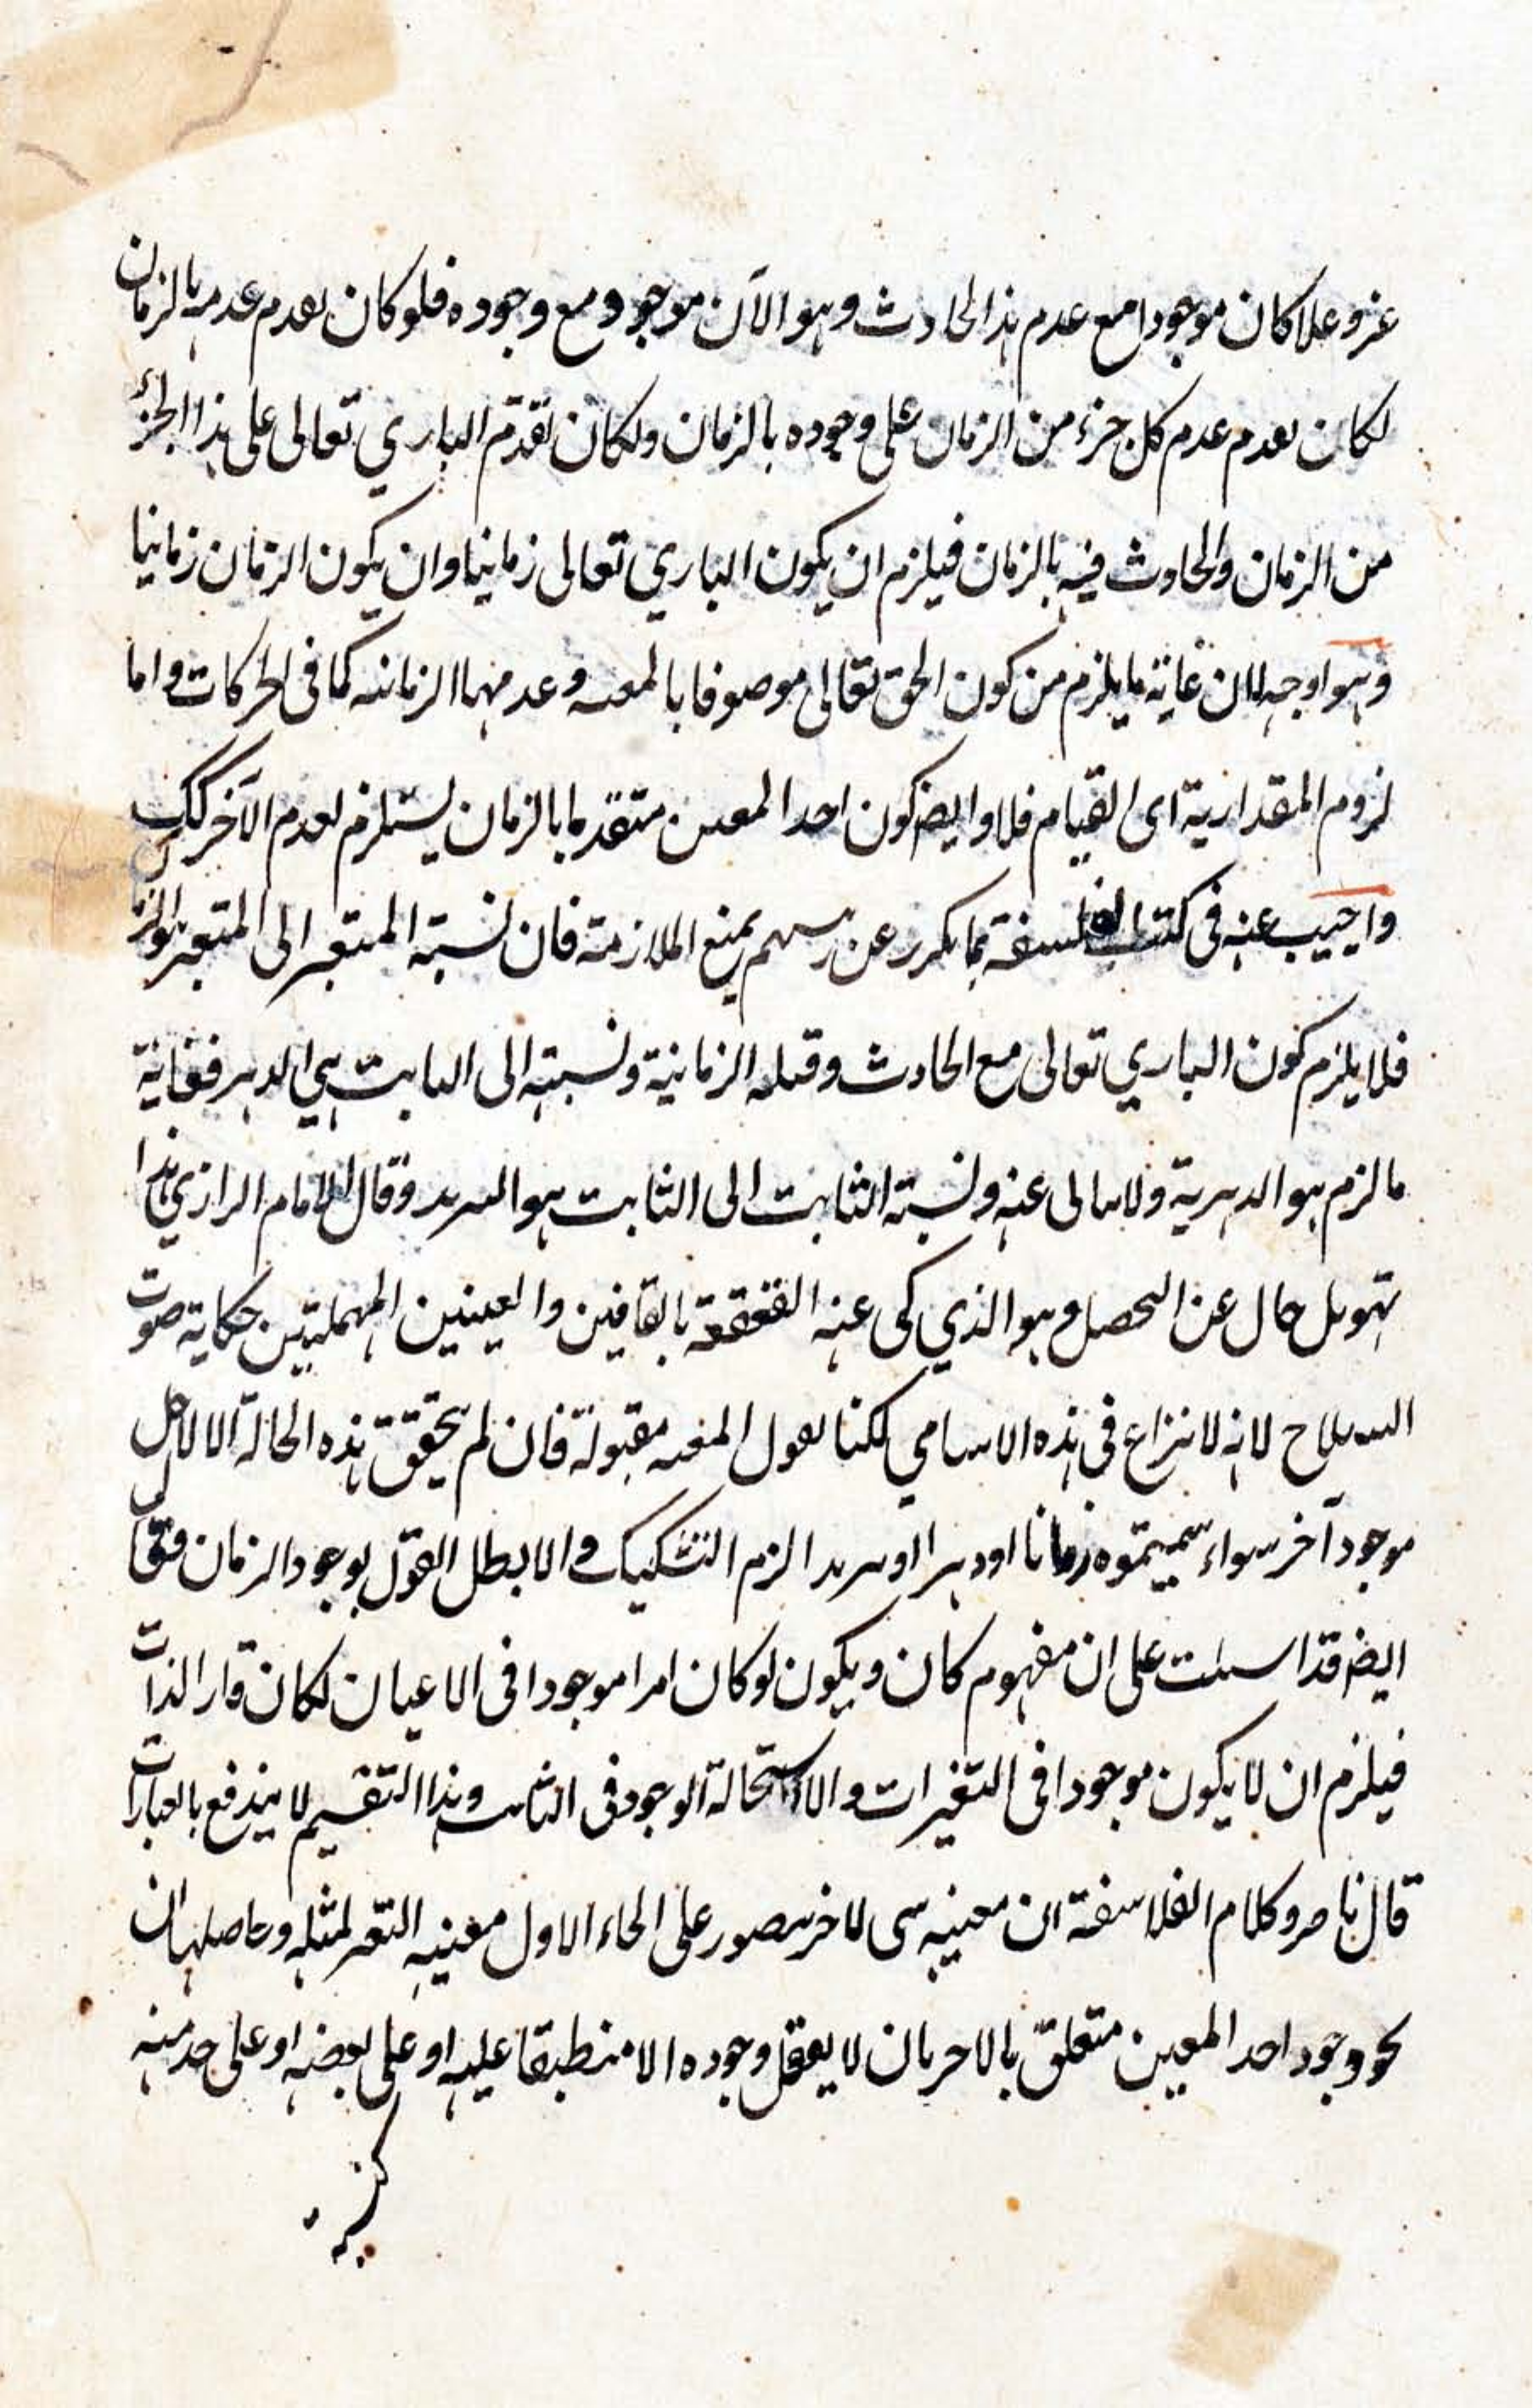 عز وعلا كان موجودا مع عدم هذا الحادث وهو الآن موجود مع وجوده فلو كان تقدم عدمه بالزمان
لكان تقدم عدم كل جزء من الزمان على وجوده بالزمان ولكان تقدم الباري تعالى على هذا الجزء
من الزمان والحادث فيه بالزمان فيلزم ان يكون الباري تعالى زمانيا وان يكون الزمان زمانيا
وهو اوجه لان غاية ما يلزم من كون الحق تعالى موصوفا بالمعية وعدمها الزمانية كما في الحركات واما
لزوم المقدارية اى القيام فلا وايضا كون احد المعين متقدما بالزمان يستلزم تقدم الآخر كك
واجيب عنه في كتب الفلسفة بما تكرر عن رئيسهم بمنع الملازمة فان نسبة المتغير الى المتغير هو الزمان
فلا يلزم كون الباري تعالى مع الحادث وقبله الزمانية ونسبته الى الثابت هي الدهر فغاية
ما لزم هو الدهرية ولا يتابى عنه ونسبة الثابت الى الثابت هو السرمد وقال الامام الرازي هذا
تهويل خال عن التحصيل وهو الذي كى عنه القعقعة بالقافين والعينين المهملتين حكاية صوت
السلاح لانه لا نزاع في هذه الاسامي لكنا نقول المعية مقبولة فان لم يتحقق هذه الحالة الا لاجل
موجود آخر سواء سميتموه زمانا او دهرا او سرمدا لزم التشكيك والا بطل القول بوجود الزمان وقال
ايضا قد اسست على ان مفهوم كان ويكون لو كان امرا موجودا في الاعيان لكان قار الذات
فيلزم ان لا يكون موجودا في التغيرات والا استحالة الوجود في الثابت وهذا التقسيم لا يندفع بالعبارات
قال ناصرو كلام الفلاسفة ان معية شى لاخر يتصور على انحاء الاول معية المتغير لمثله وحاصلها ان
نحو وجود احد المعين متعلق بالاخر بان لا يعقل وجوده الا منطبقا عليه او على بعضه او على حد منه